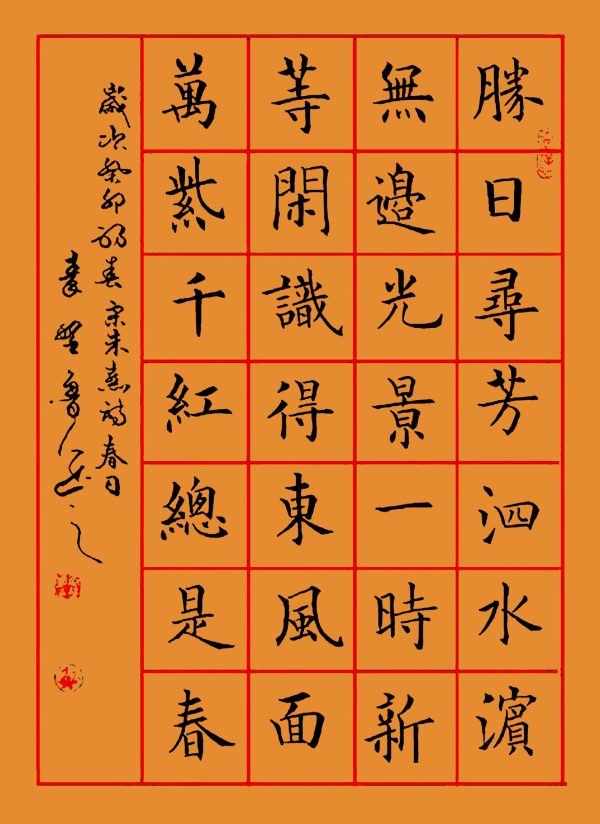 勝日尋芳泗水濱
無邊光景一時新
等閑識得東風面
萬紫千紅總是春
歲次癸卯初春宋朱熹詩春日